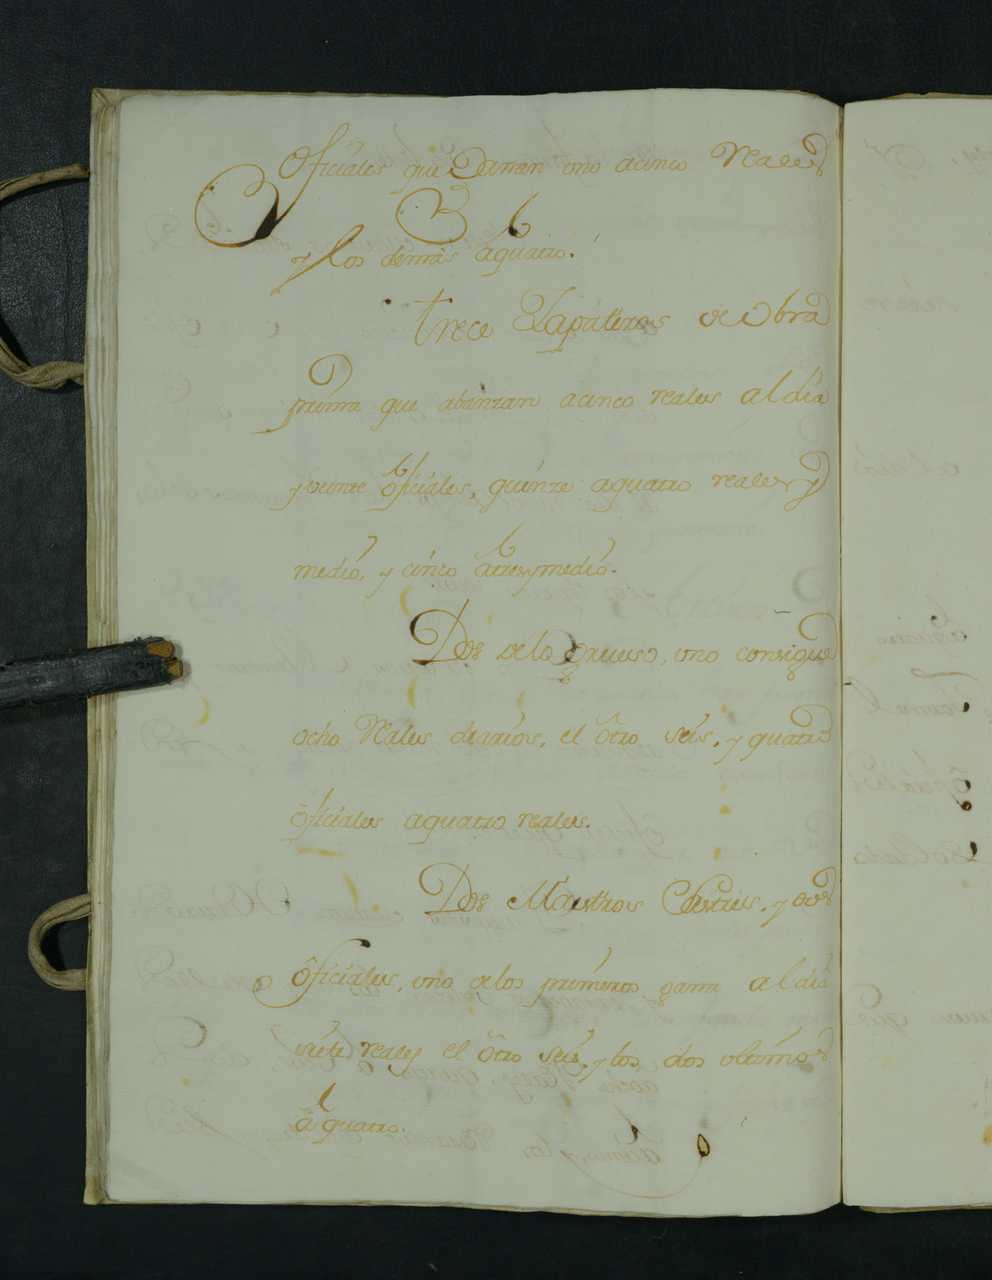 Oficiales que Ganan uno acinco Reales
y los demàs aquatro.
trece Zapateros de Obra
prima que abanzan acinco reales al dia
y veinte oficiales, quinze aquatro reales y
medio, y cinco atres y medio.
Dos de lo grueso, uno consigue
ocho Reales diarios, el otro seis, y quatro
oficiales aquatro reales.
Dos Maestros Sastres, y dos
oficiales, uno delos primeros gana al dia
siete reales el otro seis, y los dos ultimos
à quatro.